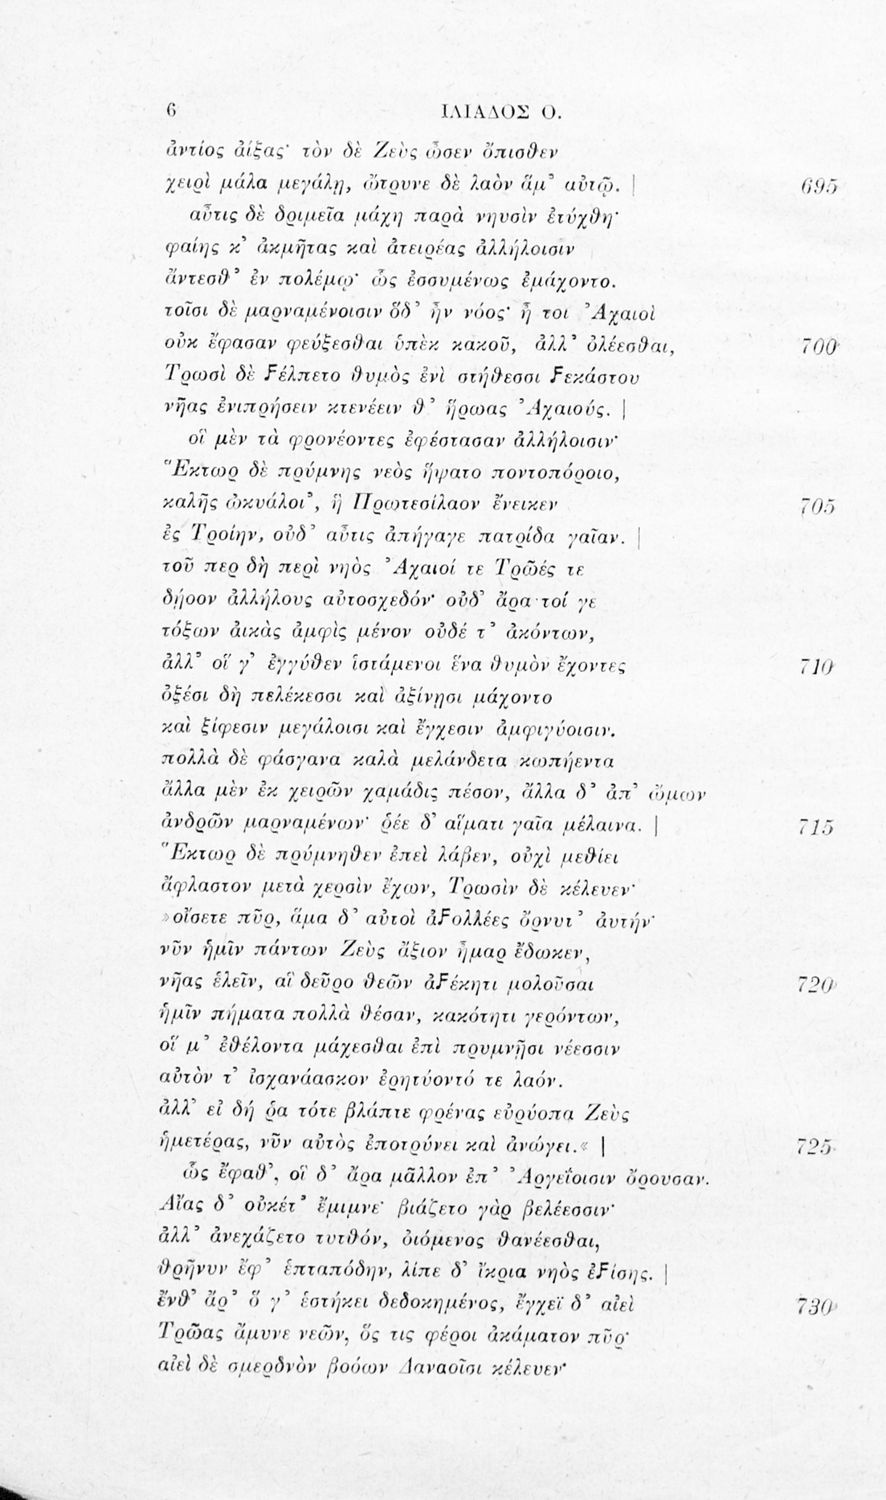 6 ΙΛΙΑΔΟΣ Ο.
ἀντίος ἀίξας· τὸν δὲ Ζεὺς ὦσεν ὄπισθεν
χειρὶ μάλα μεγάλη, ὤτρυνε δὲ λαὸν ἅμ᾽ αὐτῷ. | 695
αὖτις δὲ δριμεῖα μάχη παρὰ νηυσὶν ἐτύχθη·
φαίης κ᾽ ἀκμῆτας καὶ ἀτειρέας ἀλλήλοισιν
ἄντεσθ᾽ ἐν πολέμῳ· ὣς ἐσσυμένως ἐμάχοντο.
τοῖσι δὲ μαρναμένοισιν ὅδ᾽ ἦν νόος· ἦ τοι Ἀχαιοὶ
οὐκ ἔφασαν φεύξεσθαι ὑπὲκ κακοῦ, ἀλλ᾽ ὀλέεσθαι, 700
Τρωσὶ δὲ ϝέλπετο θυμὸς ἐνὶ στήθεσσι ϝεκάστου
νῆας ἐνιπρήσειν κτενέειν θ᾽ ἥρωας Ἀχαιούς. |
οἳ μὲν τὰ φρονέοντες ἐφέστασαν ἀλλήλοισιν·
Ἕκτωρ δὲ πρύμνης νεὸς ἥψατο ποντοπόροιο,
καλῆς ὠκυάλοι᾽, ἣ Πρωτεσίλαον ἔνεικεν 705
ἐς Τροίην, οὐδ᾽ αὖτις ἀπήγαγε πατρίδα γαῖαν. |
τοῦ περ δὴ περὶ νηὸς Ἀχαιοί τε Τρῶές τε
δῄοον ἀλλήλους αὐτοσχεδόν· οὐδ᾽ ἄρα τοί γε
τόξων ἀικὰς ἀμφὶς μένον οὐδέ τ᾽ ἀκόντων,
ἀλλ᾽ οἵ γ᾽ ἐγγύθεν ἱστάμενοι ἕνα θυμὸν ἔχοντες 710
ὀξέσι δὴ πελέκεσσι καὶ ἀξίνῃσι μάχοντο
καὶ ξίφεσιν μεγάλοισι καὶ ἔγχεσιν ἀμφιγύοισιν.
πολλὰ δὲ φάσγανα καλὰ μελάνδετα κωπήεντα
ἄλλα μὲν ἐκ χειρῶν χαμάδις πέσον, ἄλλα δ᾽ ἀπ᾽ ὤμων
ἀνδρῶν μαρναμένων· ῥέε δ᾽ αἵματι γαῖα μέλαινα. | 715
Ἕκτωρ δὲ πρύμνηθεν ἐπεὶ λάβεν, οὐχὶ μεθίει
ἄφλαστον μετὰ χερσὶν ἔχων, Τρωσὶν δὲ κέλευεν·
»οἴσετε πῦρ, ἅμα δ᾽ αὐτοὶ ἀϝολλέες ὄρνυτ᾽ ἀυτήν·
νῦν ἡμῖν πάντων Ζεὺς ἄξιον ἦμαρ ἔδωκεν,
νῆας ἑλεῖν, αἳ δεῦρο θεῶν ἀϝέκητι μολοῦσαι 720
ἡμῖν πήματα πολλὰ θέσαν, κακότητι γερόντων,
οἵ μ᾽ ἐθέλοντα μάχεσθαι ἐπὶ πρυμνῇσι νέεσσιν
αὐτὸν τ᾽ ἰσχανάασκον ἐρητύοντό τε λαόν.
ἀλλ᾽ εἰ δή ῥα τότε βλάπτε φρένας εὐρύοπα Ζεὺς
ἡμετέρας, νῦν αὐτὸς ἐποτρύνει καὶ ἀνώγει.« | 725
ὣς ἔφαθ᾽, οἳ δ᾽ ἄρα μᾶλλον ἐπ᾽ Ἀργεΐοισιν ὄρουσαν.
Αἴας δ᾽ οὐκέτ᾽ ἔμιμνε· βιάζετο γὰρ βελέεσσιν·
ἀλλ᾽ ἀνεχάζετο τυτθόν, ὀιόμενος θανέεσθαι,
θρῆνυν ἔφ᾽ ἑπταπόδην, λίπε δ᾽ ἴκρια νηὸς ἐϝίσης. |
ἔνθ᾽ ἄρ᾽ ὅ γ᾽ ἑστήκει δεδοκημένος, ἔγχεϊ δ᾽ αἰεὶ 730
Τρῶας ἄμυνε νεῶν, ὅς τις φέροι ἀκάματον πῦρ·
αἰεὶ δὲ σμερδνὸν βοόων Δαναοῖσι κέλευεν·